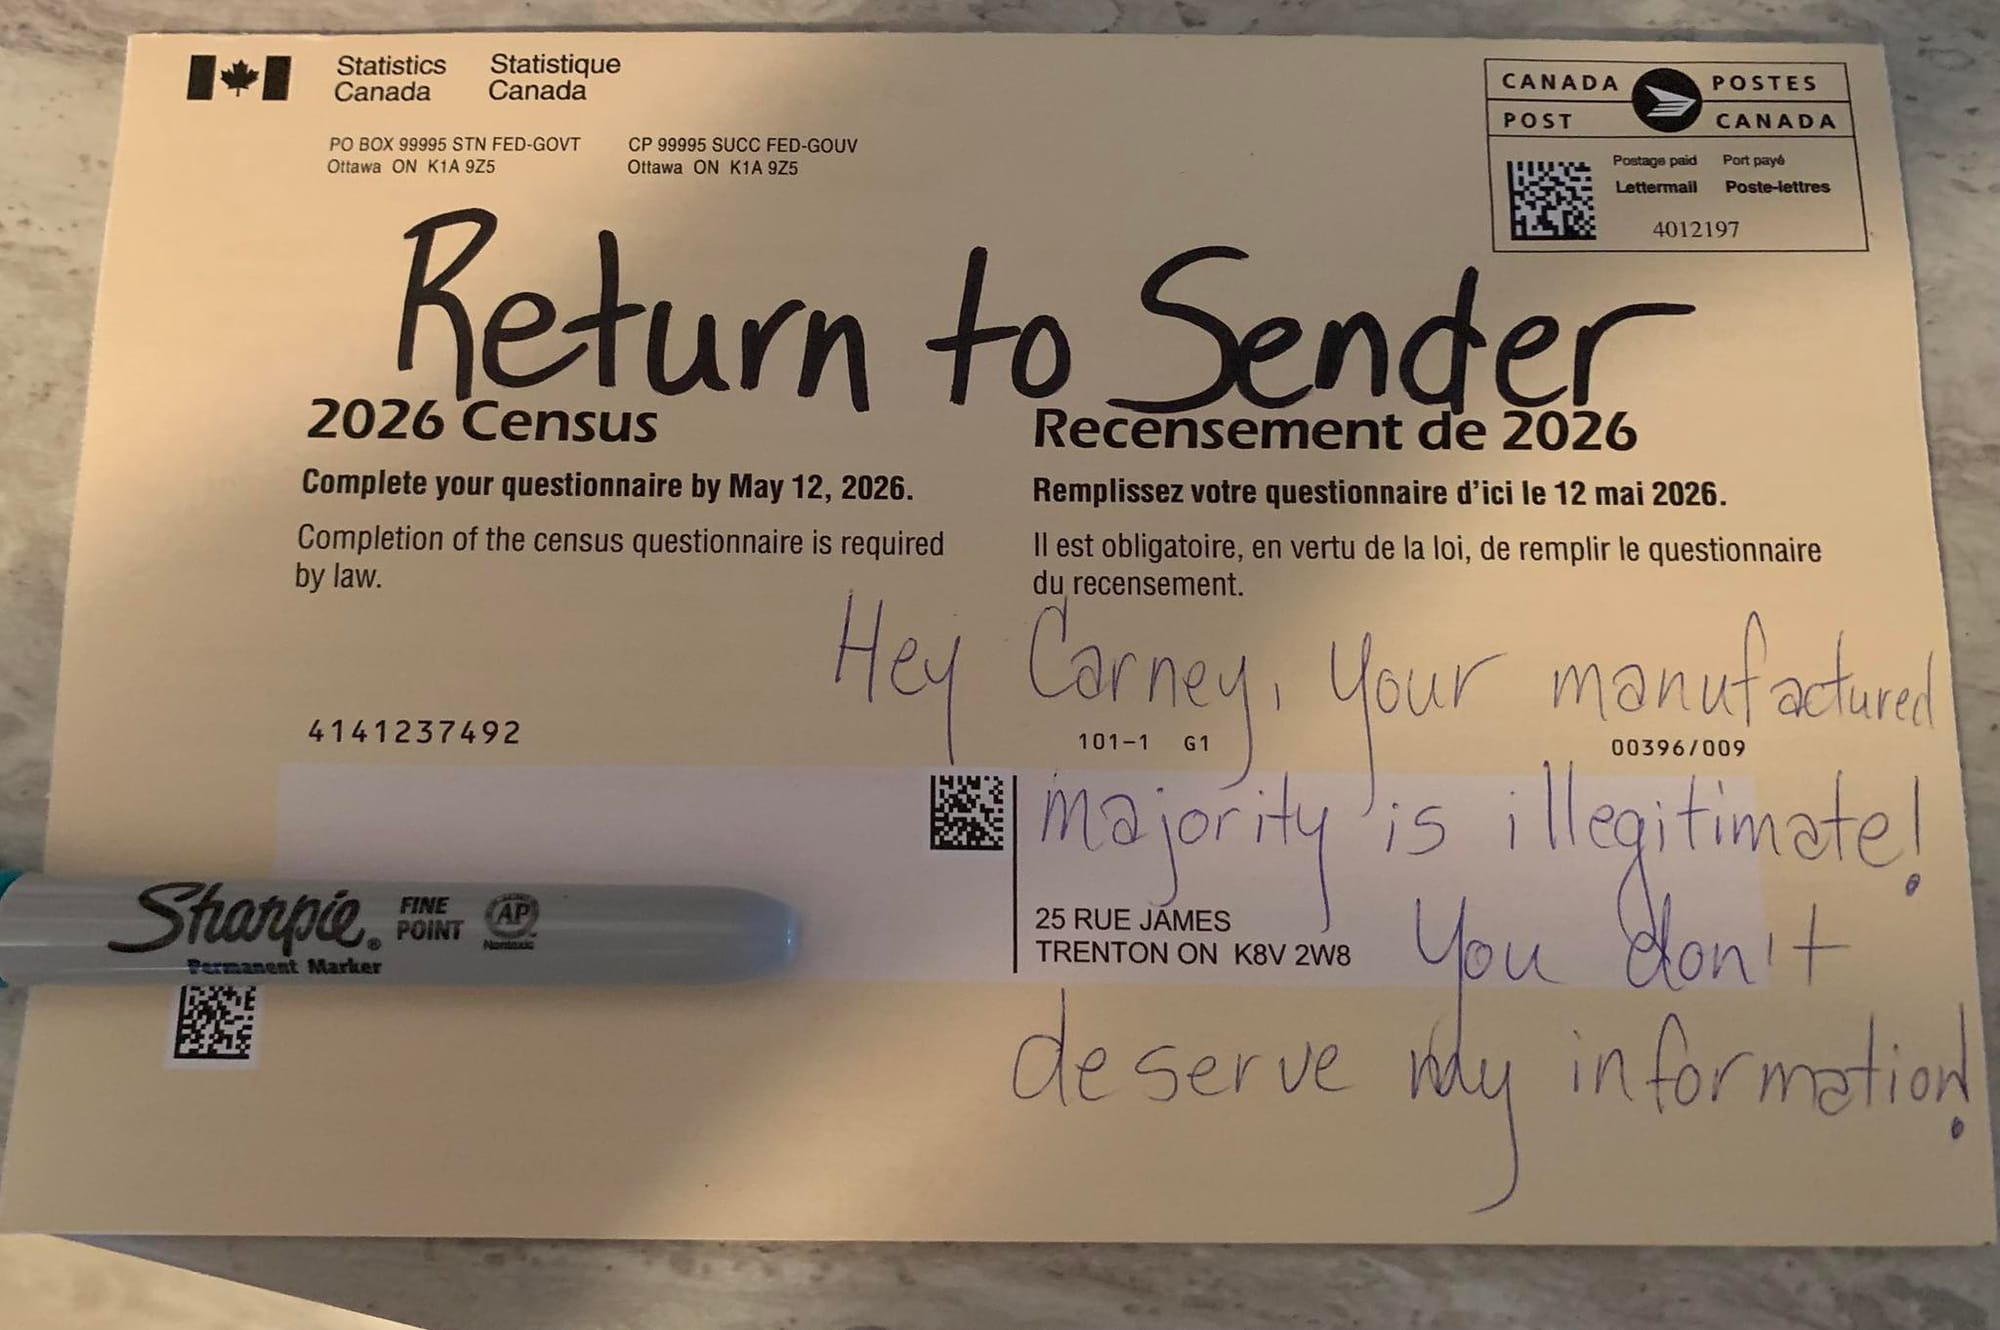 Statistics Canada
Statistique Canada
PO BOX 99995 STN FED-GOVT
Ottawa ON K1A 9Z5
CP 99995 SUCC FED-GOUV
Ottawa ON K1A 9Z5
CANADA POSTES
POST CANADA
Postage paid Port payé
Lettermail Poste-lettres
4012197
Return to Sender
2026 Census
Complete your questionnaire by May 12, 2026.
Completion of the census questionnaire is required
by law.
Recensement de 2026
Remplissez votre questionnaire d'ici le 12 mai 2026.
Il est obligatoire, en vertu de la loi, de remplir le questionnaire
du recensement.
Hey Carney, your manufactured
majority is illegitimate!
You don't
deserve my information!
4141237492
101-1 G1
00396/009
25 RUE JAMES
TRENTON ON K8V 2W8
Sharpie®
FINE
POINT
AP
Nontoxic
Permanent Marker